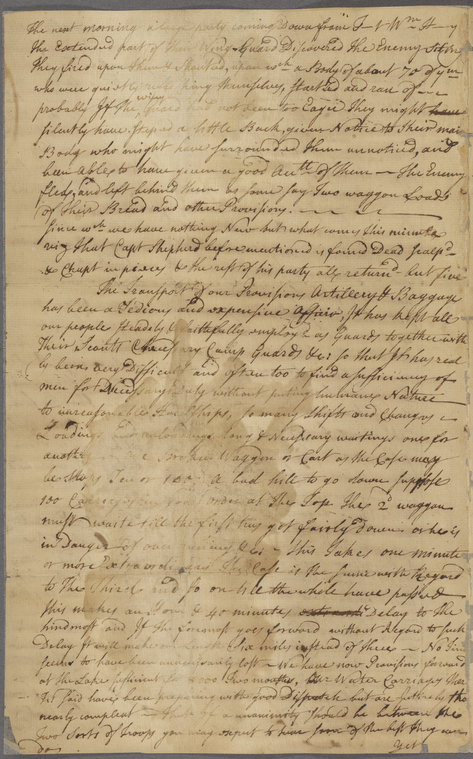 The next morning a large party coming Down from F t Wm H y
the Extended part of their Wing Guard Discovered the Enemy
they fired upon them & Shouted, upon wch a Body of about 70 of ym
who were quietly resting themselves, started and ran of
probably if the wing guard had not been too Eager they might have
silently have stoped a little Back, given Notice to their main
Body who might have surrounded them unnoticed, and
been Able to have given a good Acctt of them — The Enemy
fled, and left behind them as some say Two waggon Loads
of their Bread and other Provisions.
Since wch we have nothing New but what comes this minute
viz that Capt Shepherd aforementioned is found Dead Scalp'd
& Chapt in pieces & the rest of his party all return'd but five
The Transport of our Provisions Artillery & Baggage
has been a Tedious and expensive Affair, It has kept all
our people steadily & faithfully employ'd as Guards together with
Their Scouts Necessary Camp Guards &c: so that it has real
ly been very Difficult and often too to find a sufficiency of
men for Necessary Duty without puting humane Nature
to unreasonable Hardships, so many Shifts and Changes
Loadings and unloadings long & Necessary waitings one for
another a Broken Waggon or Cart as the Case may
be Stops Ten or 100, a bad hill to go down suppose
100 Carriages at the Top The 2d waggon
must waite till the first has got fairly Down or he is
in Danger of over &c: — this takes one minute
or more Extraordinary The Case is the same with Regard
to the Third and so on till the whole have passed
this makes an hour & 40 minutes Delay to the
hindmost and If the foremost goes forward without Regard to such
Delay it will make six miles instead of three — No time
seems to have been unnecessarily lost — We have now Provisions forward
at the Lake sufficient for 4000 Two months, Our Water Carriages
tis said have been preparing with good Dispatch but are
nearly compleat — that if a unanimity should be between the
two sorts of troops you may expect to hear some of the best they can
do Yet